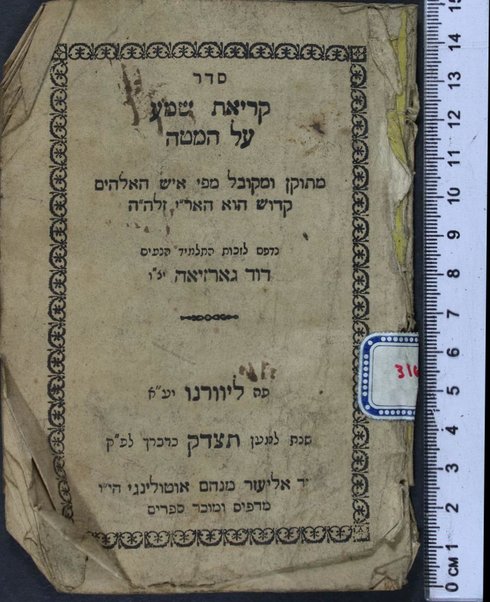 סדר
קריאת שמע
על המטה
מתוקן ומקובל מפי איש האלהים
קדוש הוא האר״י זלה״ה
נדפס לזכות התלמיד הנעים
דוד גארזיאה יצ״ו
פה ליוורנו יע״א
שנת למען תצדק בדברך לפ״ק
אליעזר מנחם אוטולינגי הי״ו
מדפיס ומוכר ספרים
316
0 CM 1 2 3 4 5 6 7 8 9 10 11 12 13 14 15